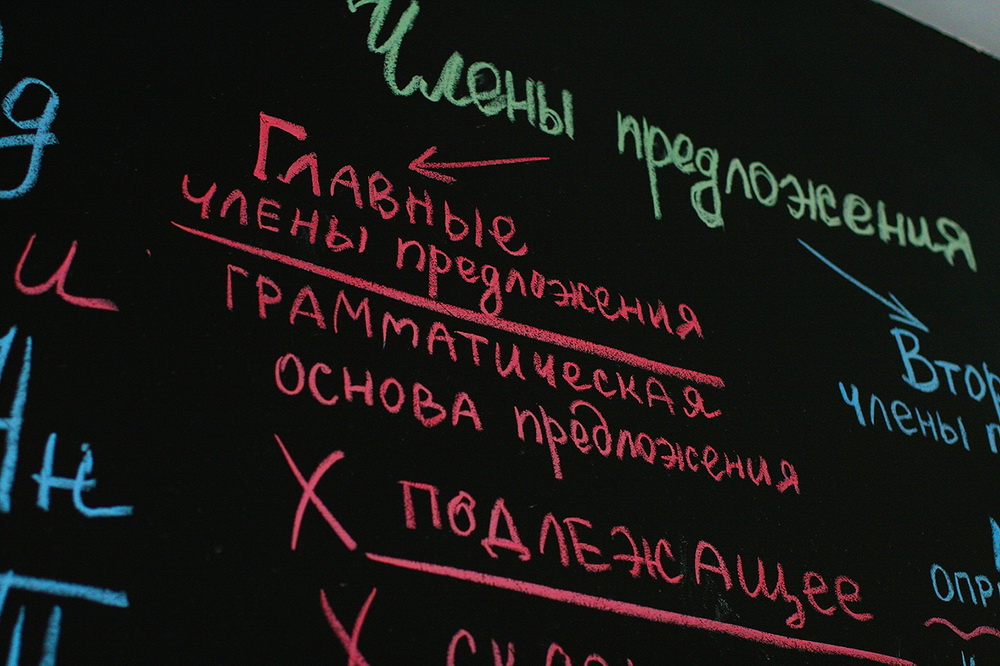 Члены предложения
Главные
члены предложения
ГРАММАТИЧЕСКАЯ
основа предложения
Х ПОДЛЕЖАЩЕЕ
Х
члены